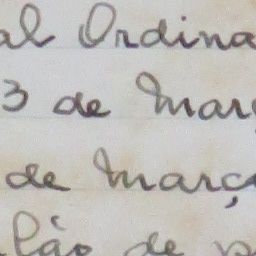 al Ordina
3 de Març
de Março
lão de p